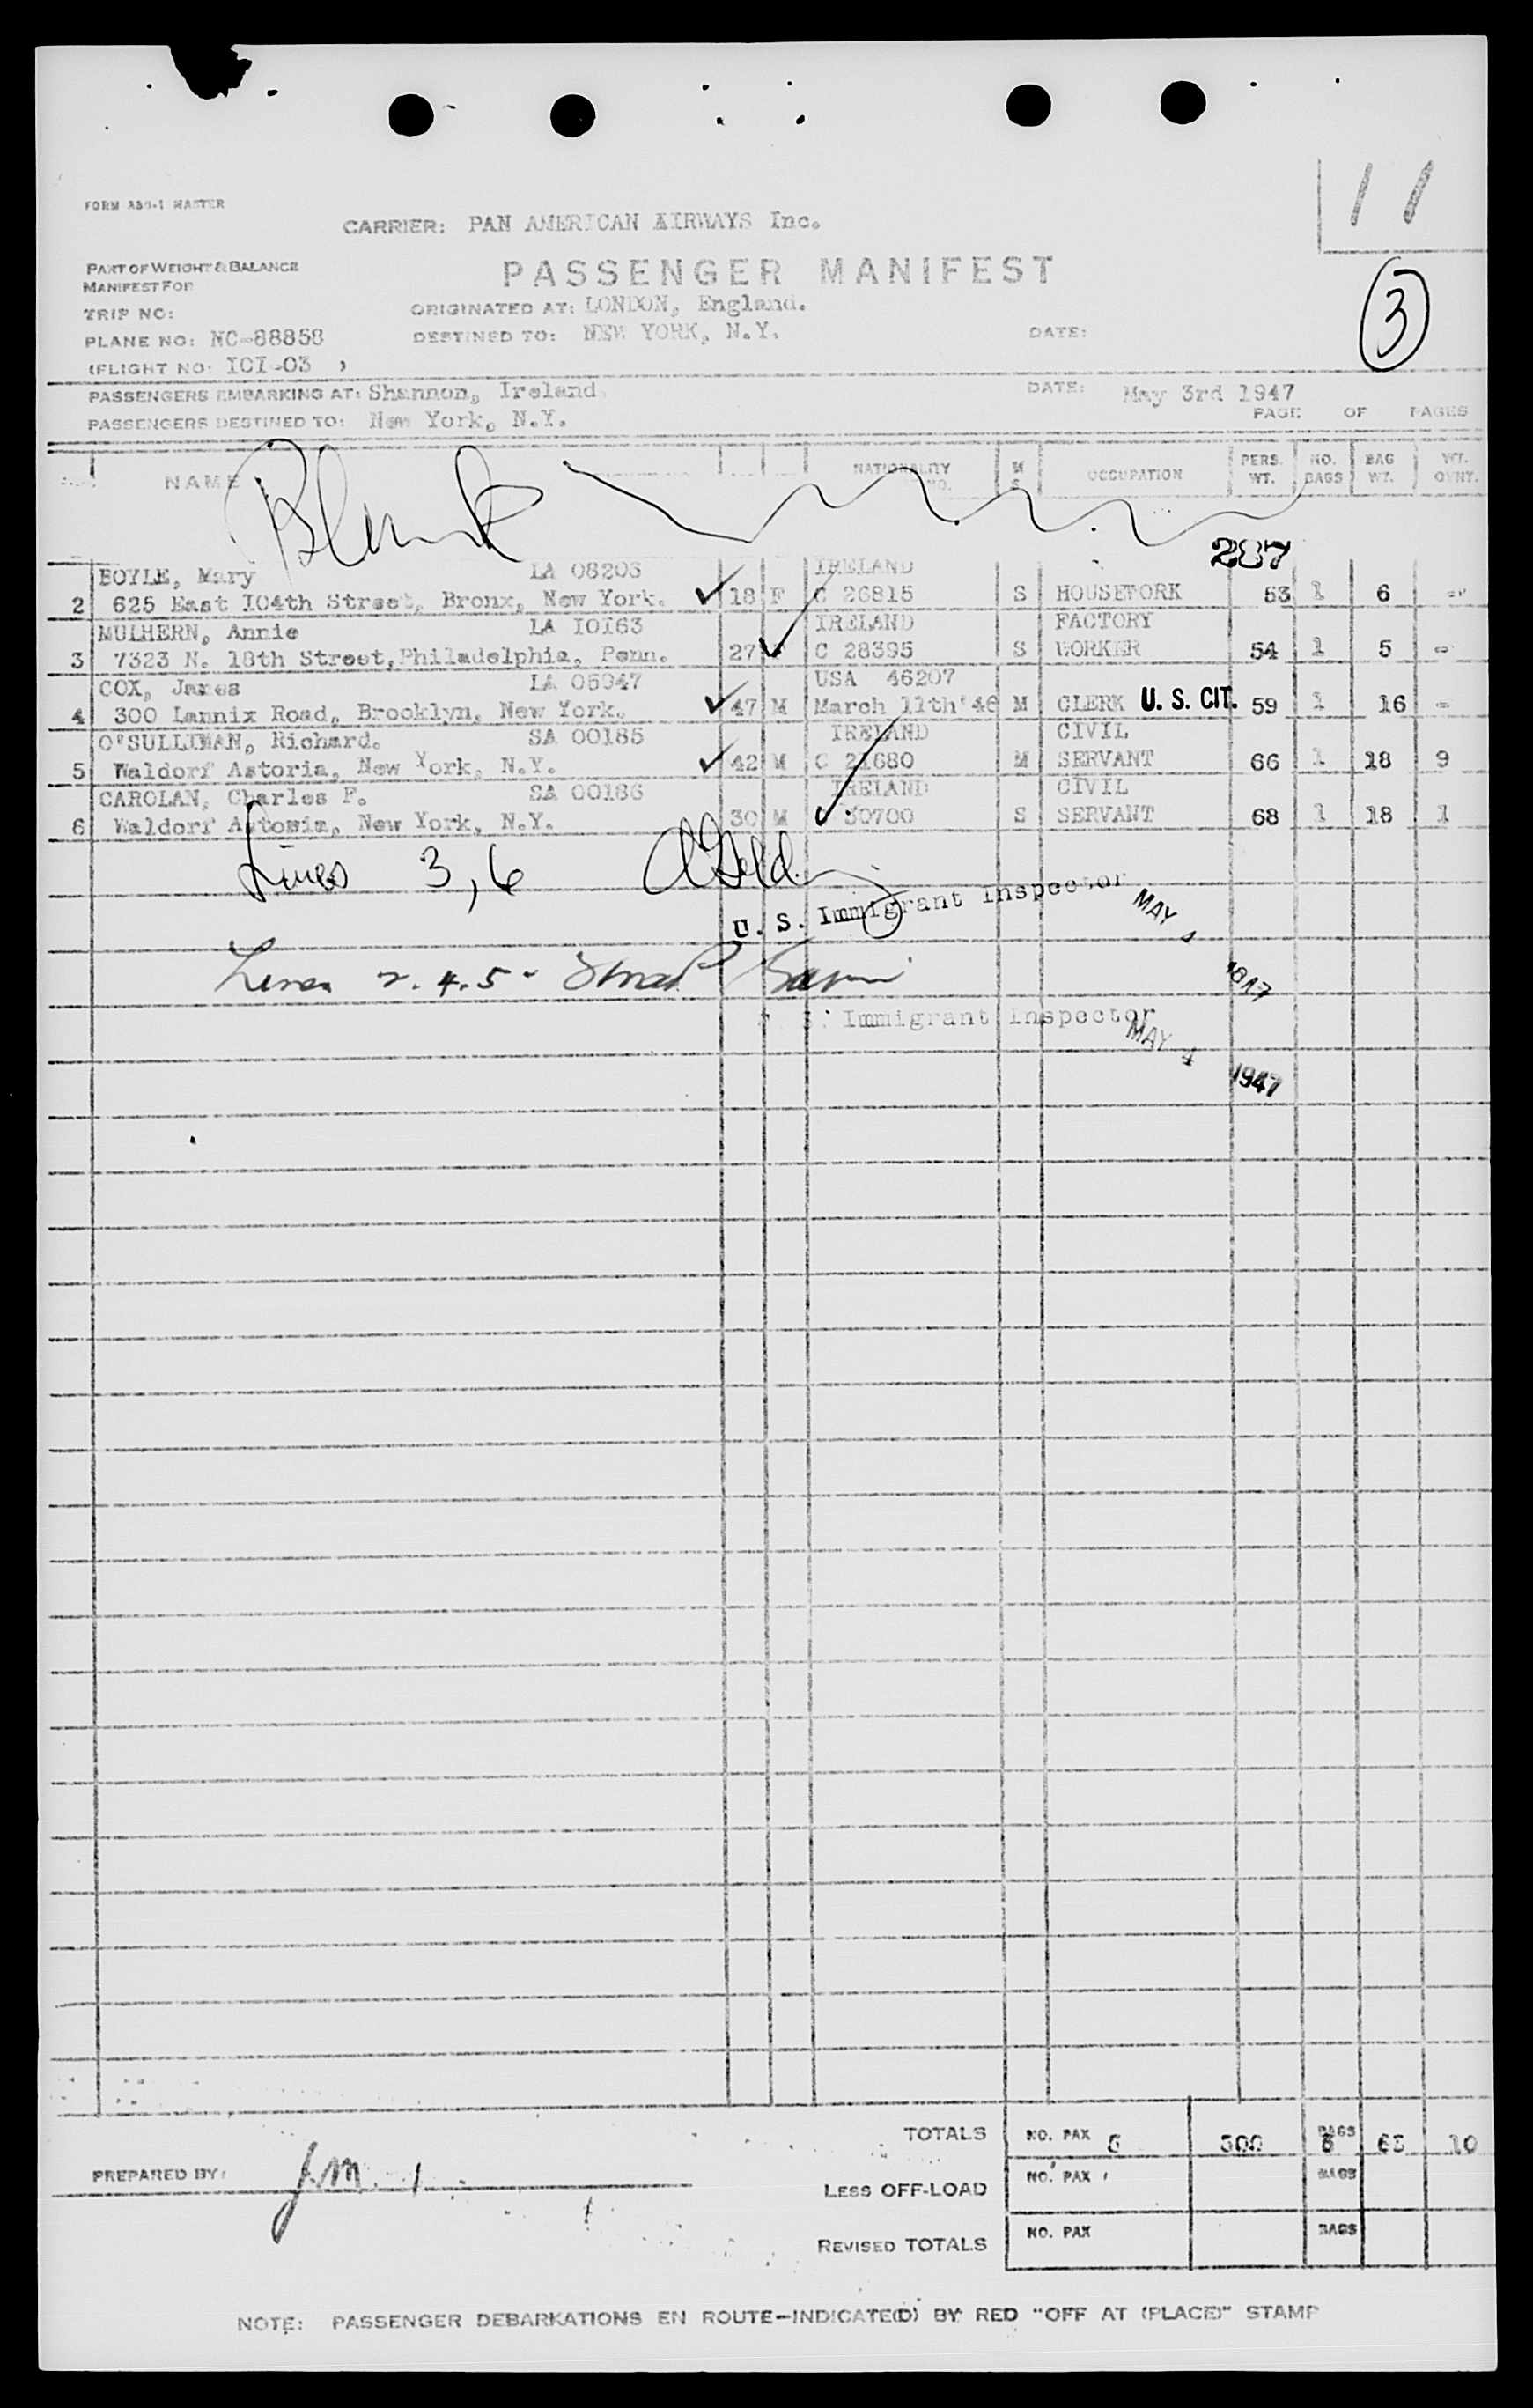 11
FORM ASG-1 MASTER
CARRIER: PAN AMERICAN AIRWAYS Inc.
PART OF WEIGHT & BALANCE
MANIFEST FOR
PASSENGER MANIFEST
3
TRIP NO:
ORIGINATED AT: LONDON, England.
PLANE NO: NC-88858
DESTINED TO: NEW YORK, N.Y.
DATE:
(FLIGHT NO: ICI-03 )
PASSENGERS EMBARKING AT: Shannon, Ireland
DATE: May 3rd 1947
PASSENGERS DESTINED TO: New York, N.Y.
PAGE OF PAGES
NAME NATIONALITY NO. M S OCCUPATION PERS. WT. NO. BAGS BAG WT. WT. OVNT.
Blank
207
BOYLE, Mary LA 08203 IRELAND
2 625 East I04th Street, Bronx, New York. 18 F C 26815 S HOUSEWORK 53 1 6 -
MULHERN, Annie LA I0I63 IRELAND FACTORY
3 7323 N. 18th Street, Philadelphia, Penn. 27 C 28395 S WORKER 54 1 5 -
COX, James LA 05947 USA 46207
4 300 Lannix Road, Brooklyn, New York. 47 M March 11th '46 M CLERK U. S. CIT. 59 1 16 -
O'SULLIMAN, Richard. SA 00185 IRELAND CIVIL
5 Waldorf Astoria, New York, N.Y. 42 M C 21680 M SERVANT 66 1 18 9
CAROLAN, Charles F. SA 00186 IRELAND CIVIL
6 Waldorf Astoria, New York, N.Y. 30 M C 30700 S SERVANT 68 1 18 1
Lines 3, 6
U. S. Immigrant Inspector MAY 4 1947
Lines 2. 4. 5 -
Immigrant Inspector MAY 4 1947
TOTALS NO. PAX 5 300 BAGS 5 63 10
PREPARED BY: J.M.
LESS OFF-LOAD NO. PAX BAGS
REVISED TOTALS NO. PAX BAGS
NOTE: PASSENGER DEBARKATIONS EN ROUTE-INDICATE(D) BY RED "OFF AT (PLACE)" STAMP